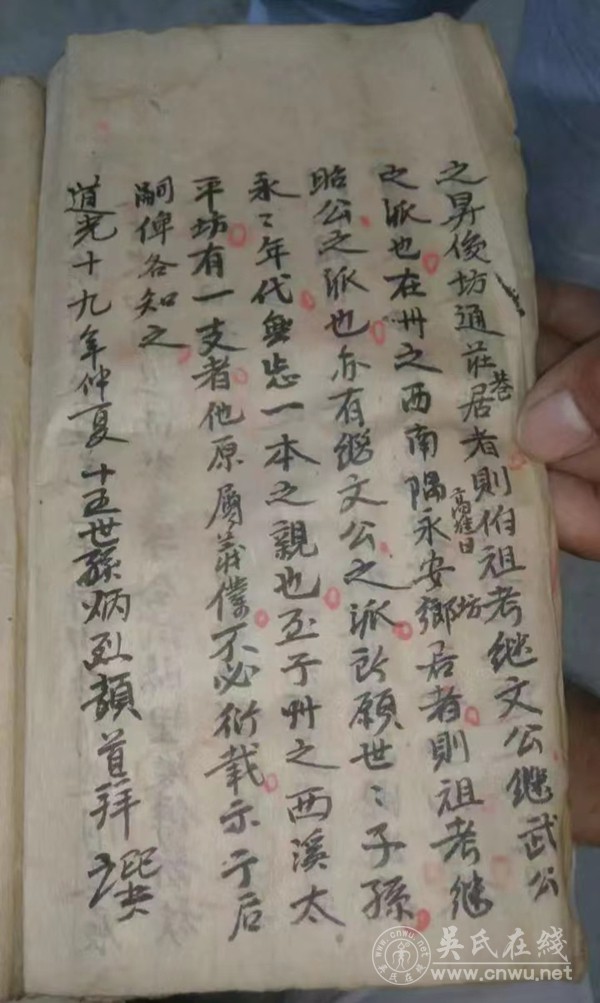 之昇俊坊通庄巷居者則伯祖考继文公继武公
之派也在州之西南隅永安鄉坊居者則祖考继
昭公之派也亦有继文公之派所願世〻子孫
永〻年代無忘一本之親也至于州之西溪太
平坊有一支者他原屬義僕不必衍載示于后
嗣俾各知之
道光十九年仲夏十五世孫炳烈頓首拜譔
吳氏在綫
www.cnwu.net